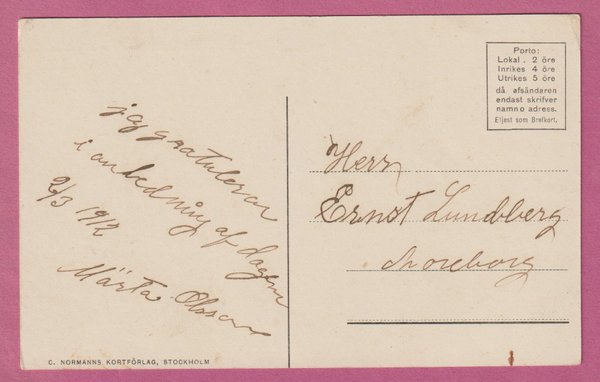 Porto:
Lokal . 2 öre
Inrikes 4 öre
Utrikes 5 öre
då afsändaren
endast skrifver
namn o adress.
Eljest som Brefkort.
jag gratulerar
i anledning af dagen
2/3 1912
Märta Olsson
Herr
Ernst Lundberg
C. NORMANNS KORTFÖRLAG, STOCKHOLM